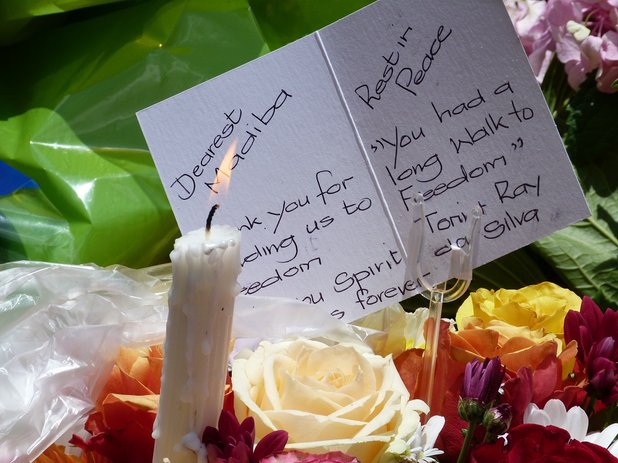 Dearest
Madiba
you for
us to
you Spirit
forever
Rest in
Peace
"You had a
long Walk to
Freedom"
Ray
da Silva